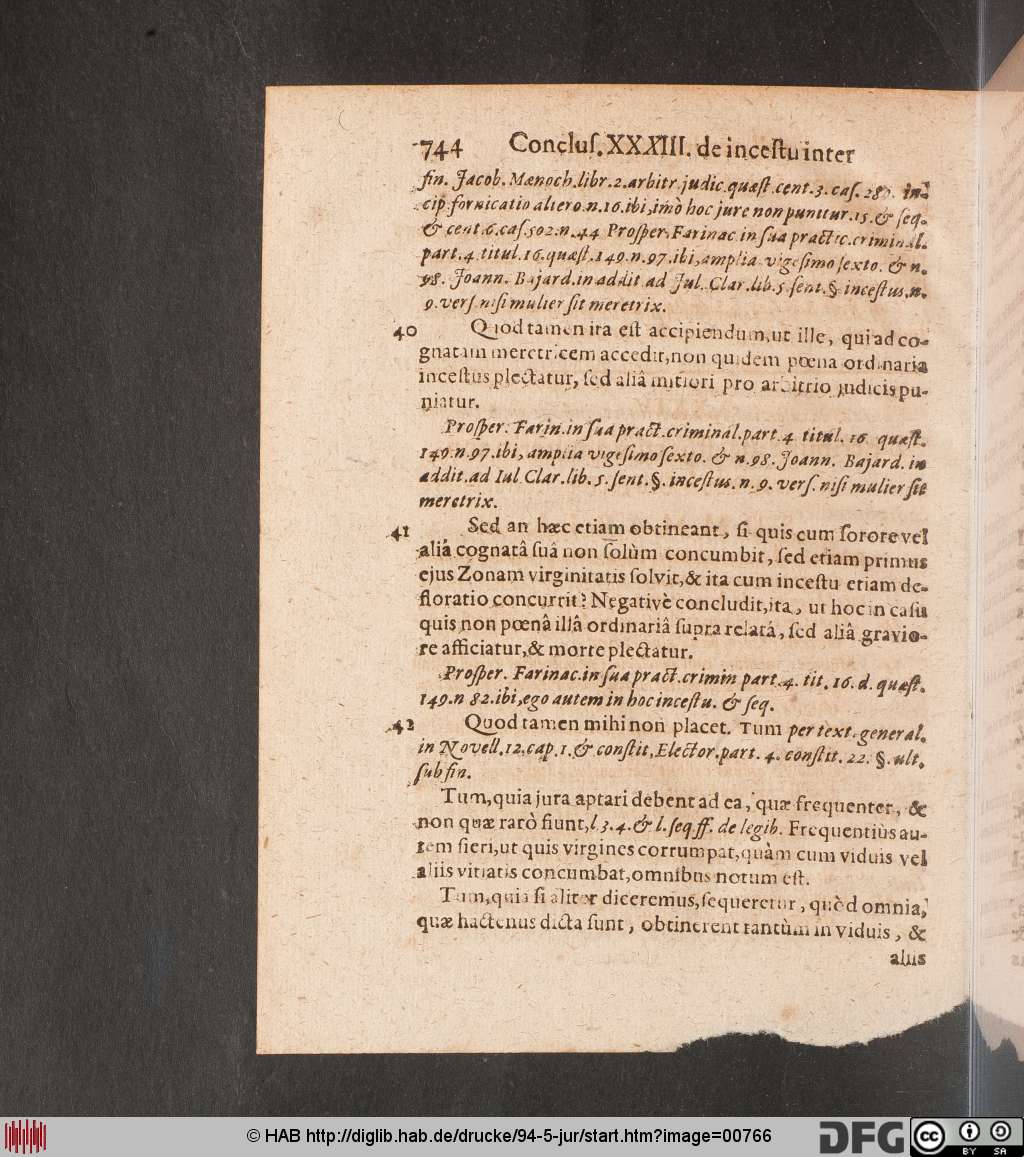 744 Concluſ. XXXIII. de inceſtu inter
fin. Jacob. Mænoch. libr. 2. arbitr. judic. quæſt. cent. 3. caſ. 289. in-
cip. fornicatio altero. n. 16. ibi, imò hoc jure non punitur. 15. & ſeq.
& cent. 6. caſ. 502. n. 44 Proſper. Farinac in ſua practic. criminal.
part. 4. titul. 16. quæſt. 149. n. 97. ibi, amplia vigeſimo ſexto. & n.
98. Joann. Bajard. in addit ad Jul. Clar. lib. 5. ſent. §. inceſtus. n.
9. verſ. niſi mulier ſit meretrix.
40 Quod tamen ita eſt accipiendum, ut ille, qui ad co-
gnatam meretricem accedit, non quidem pœna ordinaria
inceſtus plectatur, ſed aliâ mitiori pro arbitrio judicis pu-
niatur.
Proſper. Farin. in ſua pract. criminal. part. 4. titul. 16. quæſt.
149. n. 97. ibi, amplia vigeſimo ſexto. & n. 98. Joann. Bajard. in
addit. ad Iul Clar. lib. 5. ſent. §. inceſtus. n. 9. verſ. niſi mulier ſit
meretrix.
41 Sed an hæc etiam obtineant, ſi quis cum ſorore vel
aliâ cognatâ ſuâ non ſolùm concumbit, ſed etiam primus
ejus Zonam virginitatis ſolvit, & ita cum inceſtu etiam de-
floratio concurrit? Negativè concludit, ita, ut hoc in caſu
quis non pœnâ illâ ordinariâ ſupra relatâ, ſed aliâ gravio-
re afficiatur, & morte plectatur.
Proſper. Farinac. in ſua pract. crimin part. 4. tit. 16. d. quæſt.
149. n 82. ibi, ego autem in hoc inceſtu. & ſeq.
42 Quod tamen mihi non placet. Tum per text. general.
in Novell. 12. cap. 1. & conſtit, Elector. part. 4. conſtit. 22. §. ult.
ſub fin.
Tum, quia jura aptari debent ad ea, quæ frequenter, &
non quæ rarò fiunt, l 3. 4. & l. ſeq ff. de legib. Frequentiùs au-
tem fieri, ut quis virgines corrumpat, quàm cum viduis vel
aliis vitiatis concumbat, omnibus notum eſt.
Tum, quia ſi aliter diceremus, ſequeretur, quòd omnia,
quæ hactenus dicta ſunt, obtinerent tantùm in viduis, &
aliis
© HAB http://diglib.hab.de/drucke/94-5-jur/start.htm?image=00766
DFG
cc BY SA